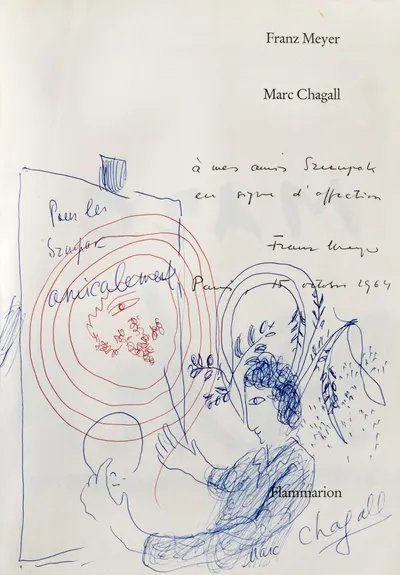 Franz Meyer
Marc Chagall
à mes amis Szwarpak
en signe d'affection
Franz Meyer
Paris 15 octobre 1964
Pour les
amicalement
Flammarion
Marc Chagall